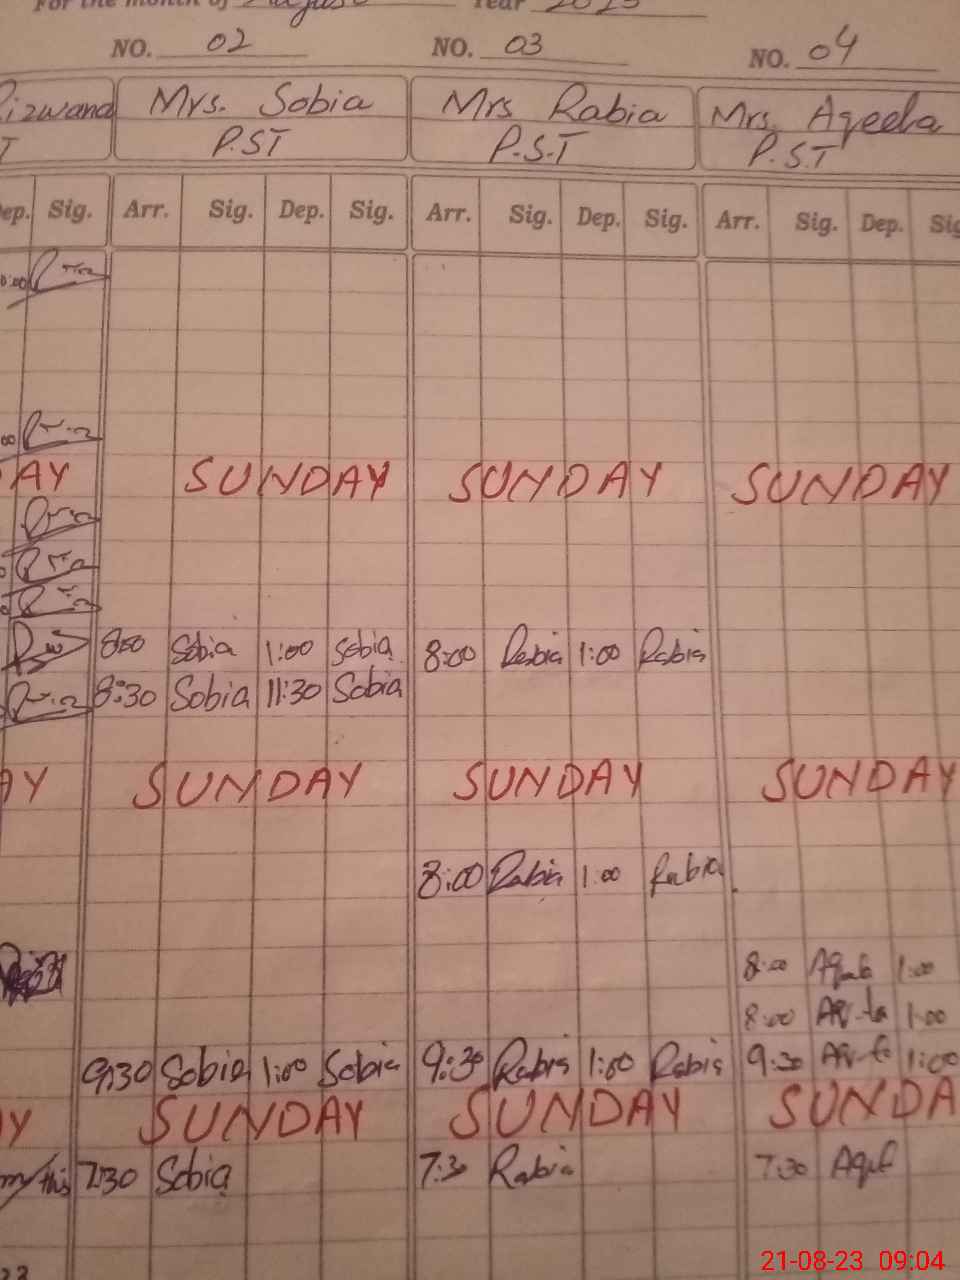 For the month of August Year 2023
NO. 02 NO. 03 NO. 04
Rizwana Mrs. Sobia Mrs Rabia Mrs Aqeela
T P.ST P.S.T P.S.T
Dep. Sig. Arr. Sig. Dep. Sig. Arr. Sig. Dep. Sig. Arr. Sig. Dep. Sig
AY SUNDAY SUNDAY SUNDAY
8:00 Sobia 1:00 Sobia 8:00 Rabia 1:00 Rabia
8:30 Sobia 11:30 Sobia
AY SUNDAY SUNDAY SUNDAY
8:00 Rabia 1:00 Rabia
8:00 1:00
8:00 1:00
9:30 Sobia 1:00 Sobia 9:30 Rabia 1:00 Rabia 9:30 1:00
AY SUNDAY SUNDAY SUNDA
7:30 Sobia 7:30 Rabia 7:30
21-08-23 09:04